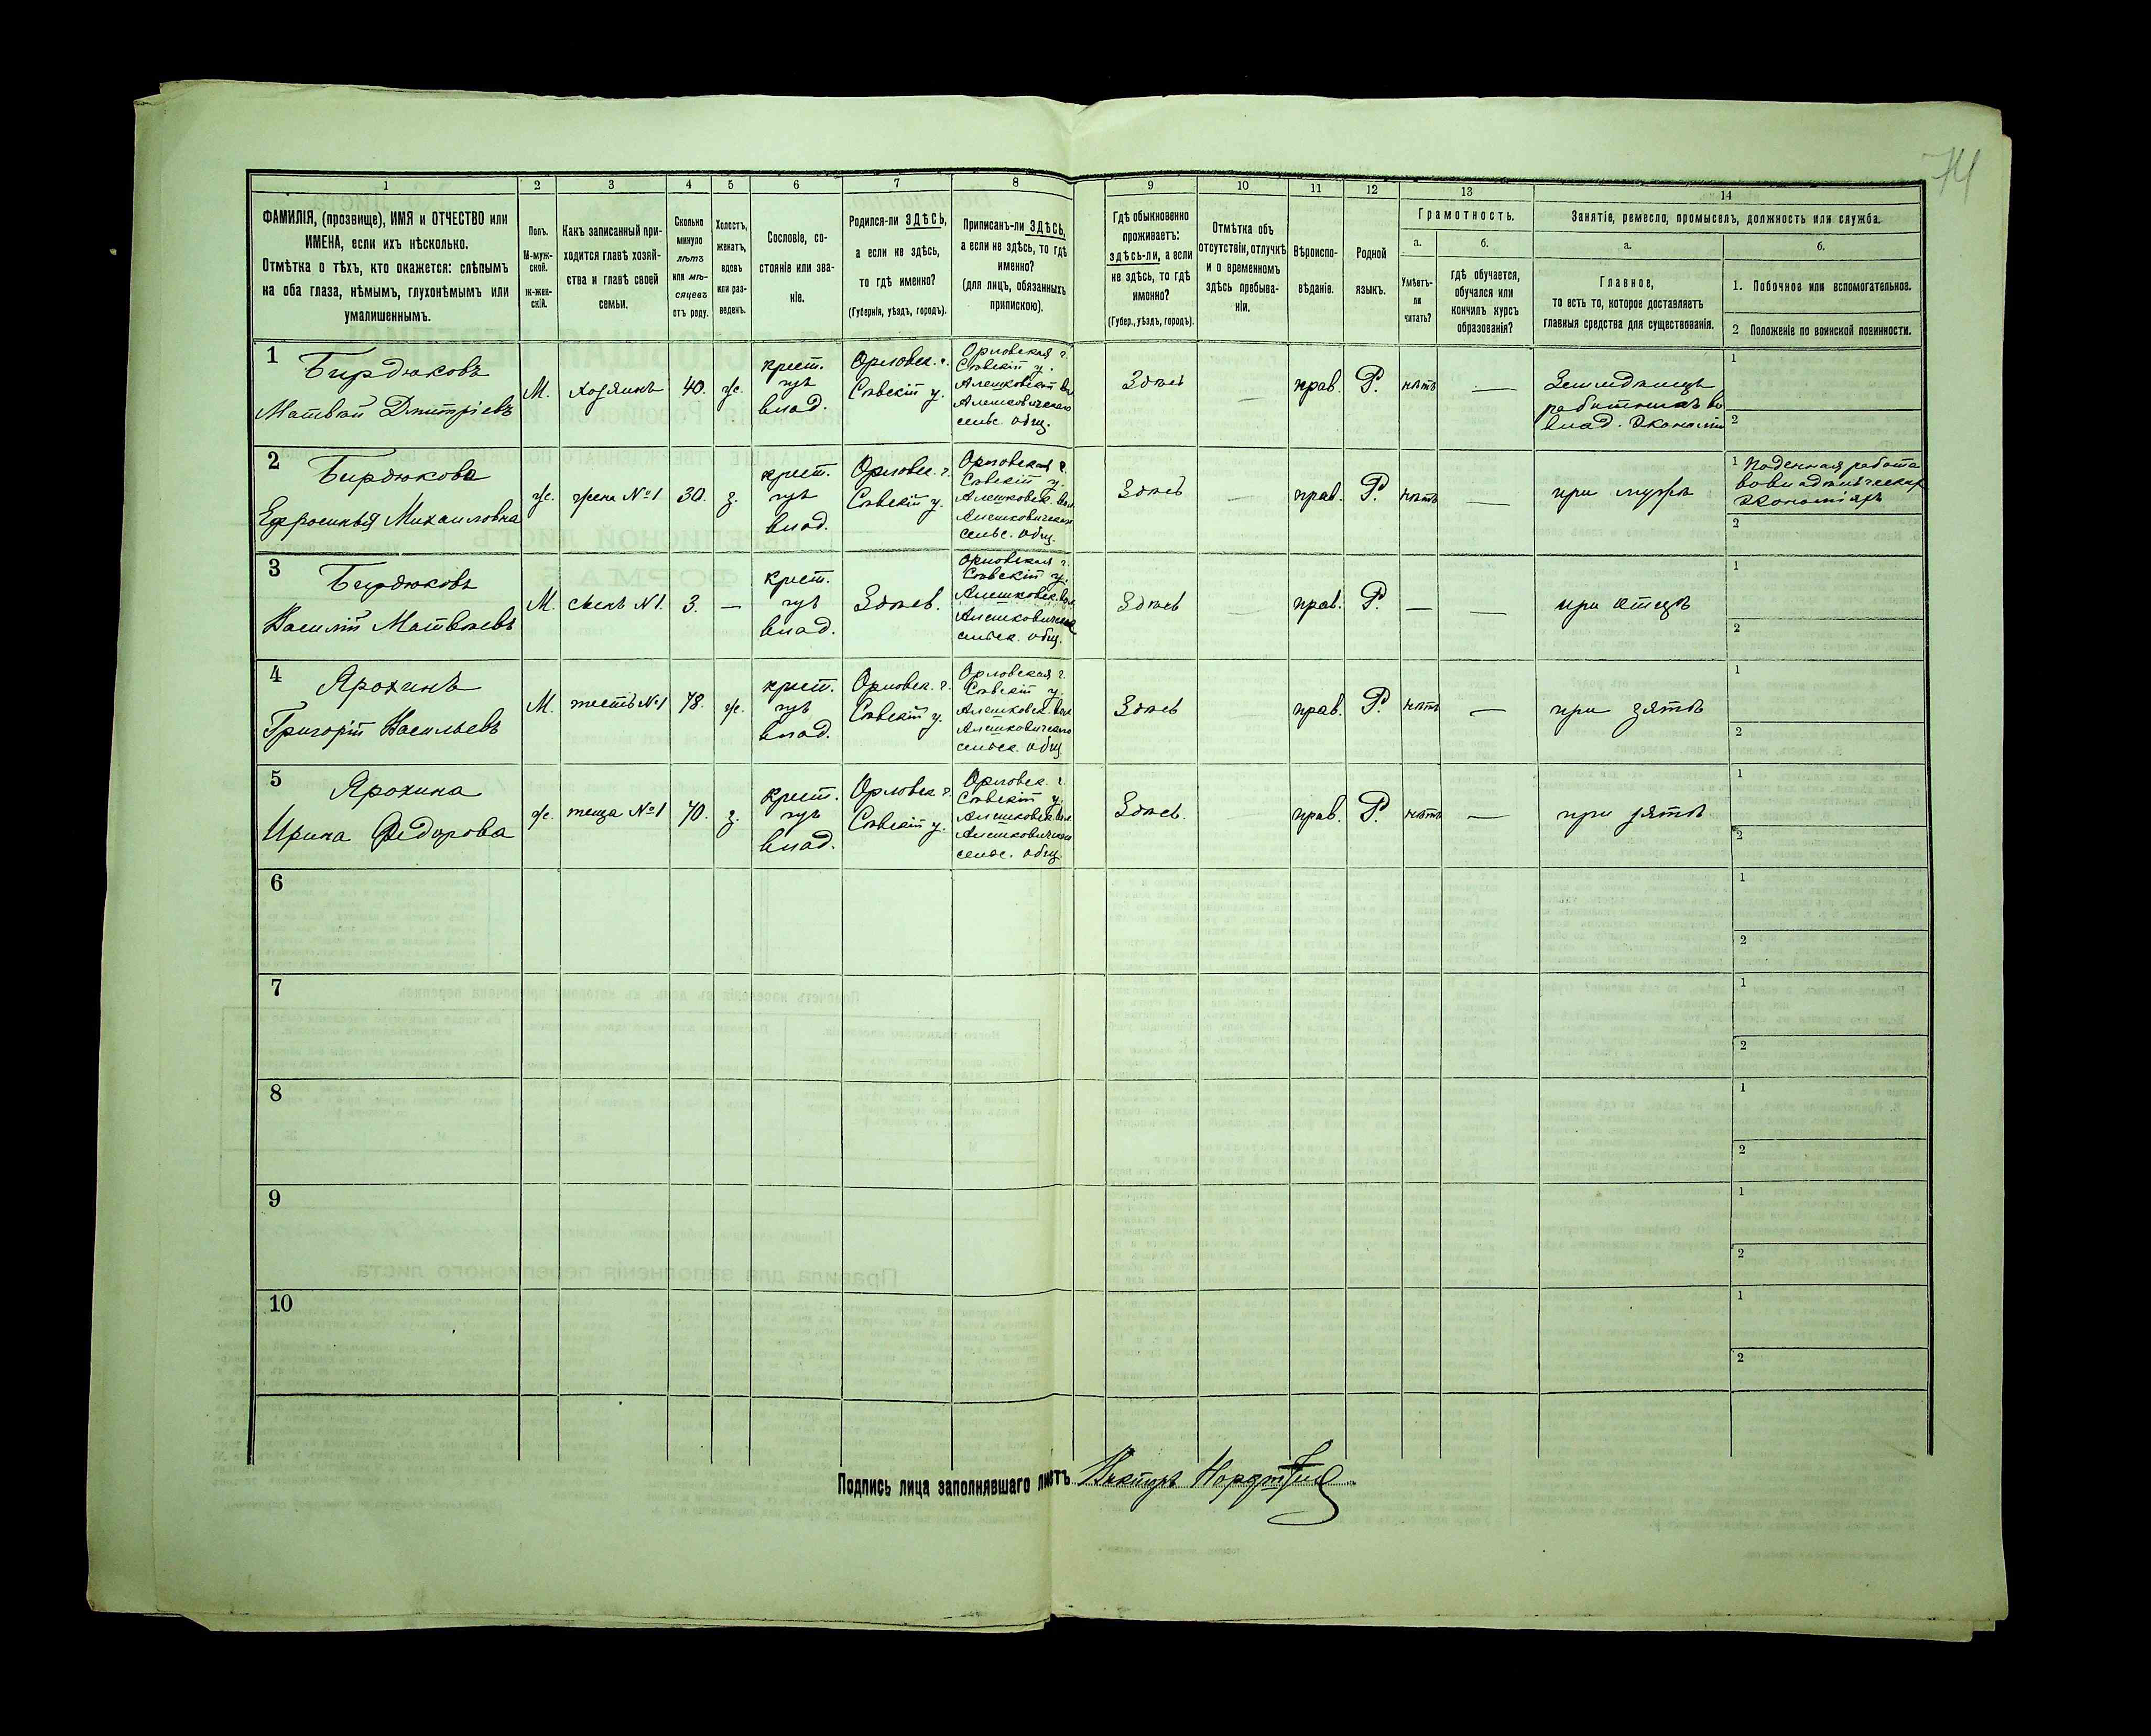 74
1 2 3 4 5 6 7 8 9 10 11 12 13 14
ФАМИЛІЯ, (прозвище), ИМЯ и ОТЧЕСТВО или
ИМЕНА, если ихъ нѣсколько.
Отмѣтка о тѣхъ, кто окажется: слѣпымъ
на оба глаза, нѣмымъ, глухонѣмымъ или
умалишеннымъ.
Полъ.
М-муж-
ской.
Ж-жен-
скій.
Какъ записанный при-
ходится главѣ хозяй-
ства и главѣ своей
семьи.
Сколько
минуло
лѣтъ
или мѣ-
сяцевъ
отъ роду.
Холостъ,
женатъ,
вдовъ
или раз-
веденъ.
Сословіе, со-
стояніе или зва-
ніе.
Родился-ли ЗДѢСЬ,
а если не здѣсь,
то гдѣ именно?
(Губернія, уѣздъ, городъ).
Приписанъ-ли ЗДѢСЬ,
а если не здѣсь, то гдѣ
именно?
(для лицъ, обязанныхъ
припискою).
Гдѣ обыкновенно
проживаетъ:
здѣсь-ли, а если
не здѣсь, то гдѣ
именно?
(Губер., уѣздъ, городъ).
Отмѣтка объ
отсутствіи, отлучкѣ
и о временномъ
здѣсь пребыва-
ніи.
Вѣроиспо-
вѣданіе.
Родной
языкъ.
Грамотность.
а.
Умѣетъ-
ли
читать?
б.
гдѣ обучается,
обучался или
кончилъ курсъ
образованія?
Занятіе, ремесло, промыселъ, должность или служба.
а.
Главное,
то есть то, которое доставляетъ
главныя средства для существованія.
б.
1. Побочное или вспомогательное.
2 Положеніе по воинской повинности.
1
Бирдюковъ
Матвѣй Дмитріевъ
М.
хозяинъ
40.
ж.
крест.
изъ
влад.
Орловск. г.
Сѣвскій у.
Орловская г.
Сѣвскій у.
Алешковской вол.
Алешковичского
сельс. общ.
Здѣсь
—
прав.
Р.
нѣтъ
—
Земледѣлецъ
работникъ во
влад. экономіи
1
2
2
Бирдюкова
Ефросинья Михаиловна
ж.
жена №1
30.
з.
крест.
изъ
влад.
Орловск. г.
Сѣвскій у.
Орловская г.
Сѣвскій у.
Алешковск. вол.
Алешковичского
сельс. общ.
Здѣсь
—
прав.
Р.
нѣтъ
—
при мужѣ
1 Поденная работа
во владѣльческихъ
экономіяхъ
2
3
Бирдюковъ
Василій Матвѣевъ
М.
сынъ №1.
3.
—
крест.
изъ
влад.
Здѣсь.
Орловская г.
Сѣвскій у.
Алешковск. вол.
Алешковичского
сельск. общ.
Здѣсь
—
прав.
Р.
—
—
при отцѣ
1
2
4
Ярохинъ
Григорій Васильевъ
М.
тесть №1
78.
ж.
крест.
изъ
влад.
Орловск. г.
Сѣвскій у.
Орловская г.
Сѣвскій у.
Алешковск. вол.
Алешковичского
сельск. общ.
Здѣсь
—
прав.
Р.
нѣтъ
—
при зятѣ
1
2
5
Ярохина
Ирина Федорова
ж.
теща №1
70.
з.
крест.
изъ
влад.
Орловск. г.
Сѣвскій у.
Орловск. г.
Сѣвскій у.
Алешковск. вол.
Алешковичского
сельс. общ.
Здѣсь.
—
прав.
Р.
нѣтъ
—
при зятѣ
1
2
6
1
2
7
1
2
8
1
2
9
1
2
10
1
2
Подпись лица заполнявшаго листъ Викторъ